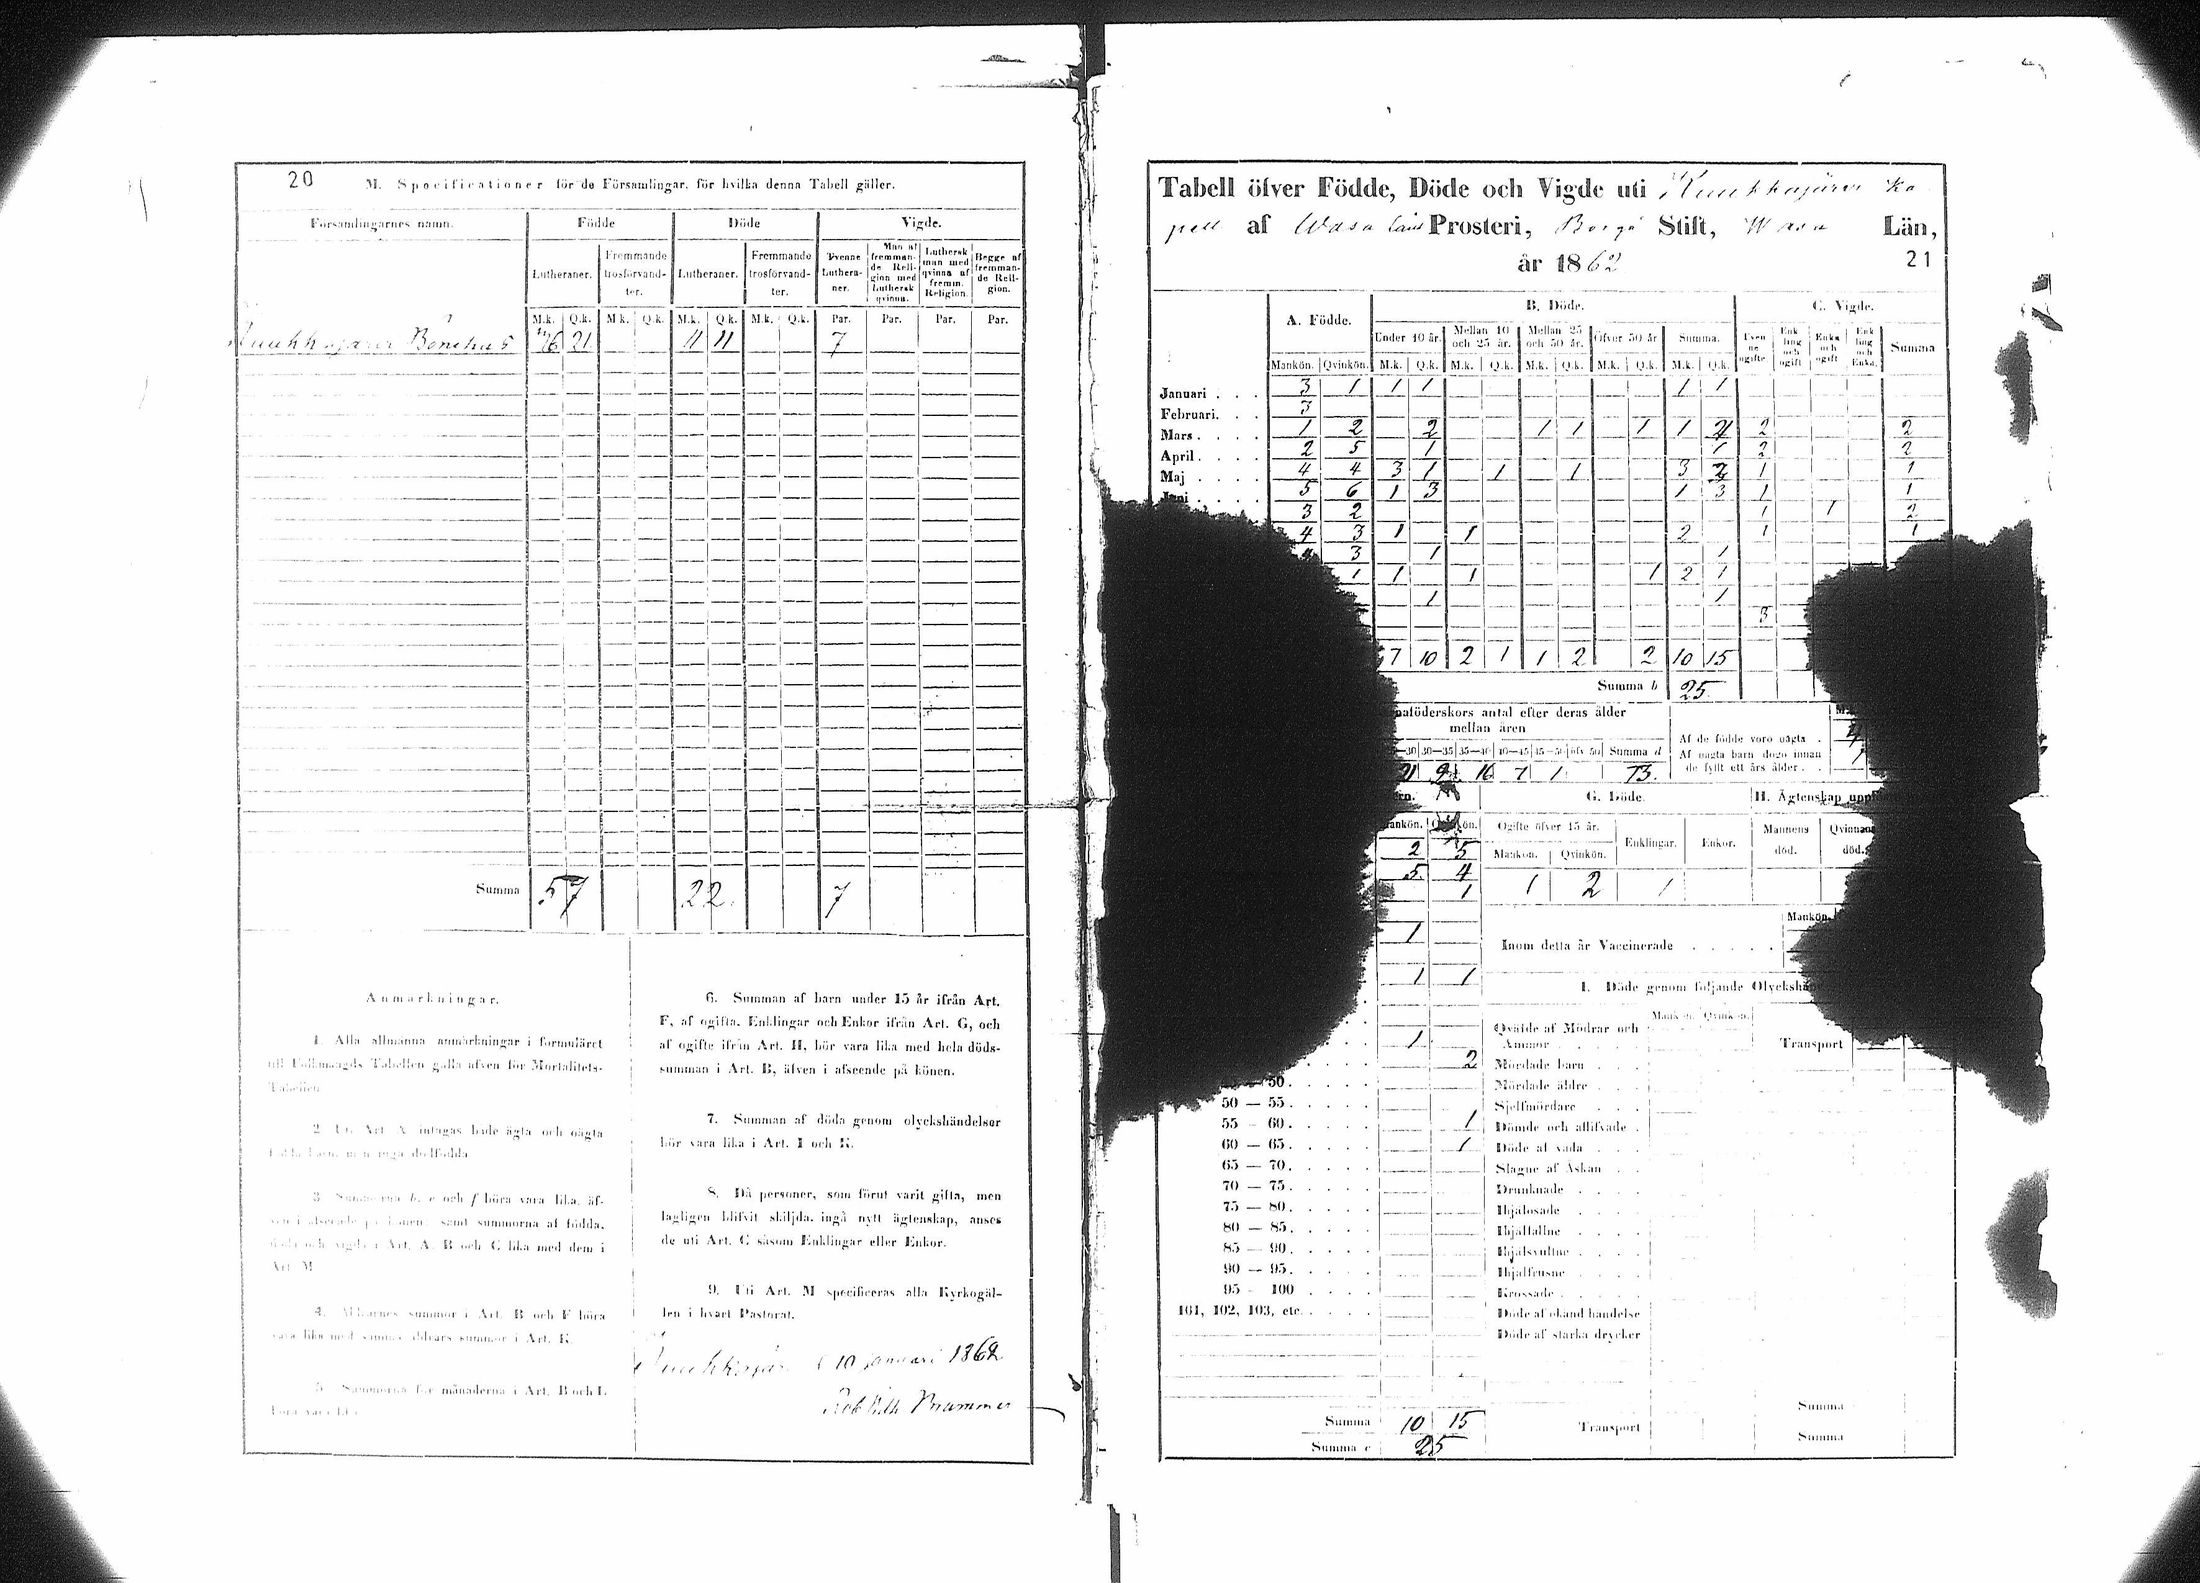 20
M. Specificationer för de Församlingar, för hvilka denna Tabell gäller.
Församlingarnes namn. Födde Döde Vigde.
Lutheraner. Fremmande trosförvandter. Lutheraner. Fremmande trosförvandter. Tvenne Lutheraner. Man af fremmande Religion med Luthersk qvinna. Luthersk man med qvinna af fremm. Religion. Begge af fremmande Religion.
M.k. Q.k. M.k. Q.k. M.k. Q.k. M.k. Q.k. Par. Par. Par. Par.
Bönehus 26 21 11 11 7
Summa 57 22. 7
Anmärkningar.
1. Alla allmänna anmärkningar i formuläret
till Folkmängds Tabellen gälla äfven för Mortalitets-
Tabellen.
2. Uti Art. A intagas både ägta och oägta
födda barn, men inga dödfödda.
3. Summorna b, e och f böra vara lika, äf-
ven i afseende på könen; samt summorna af födda,
döda och vigde i Art. A, B och C lika med dem i
Art. M.
4. Åldrarnes summor i Art. B och F böra
vara lika med samma åldrars summor i Art. K.
5. Summorna för månaderna i Art. B och L
böra vara lika.
6. Summan af barn under 15 år ifrån Art.
F, af ogifta, Enklingar och Enkor ifrån Art. G, och
af ogifte ifrån Art. H, bör vara lika med hela döds-
summan i Art. B, äfven i afseende på könen.
7. Summan af döda genom olyckshändelser
bör vara lika i Art. I och K.
8. Då personer, som förut varit gifta, men
lagligen blifvit skiljda, ingå nytt ägtenskap, anses
de uti Art. C såsom Enklingar eller Enkor.
9. Uti Art. M specificeras alla Kyrkogäl-
len i hvart Pastorat.
10 Januari 1862
Brummer
Tabell öfver Födde, Döde och Vigde uti Kuukkajärvi Ka
pell af Wasa Läns Prosteri, Borgå Stift, Wasa Län,
år 1862
21
A. Födde. B. Döde. C. Vigde.
Under 10 år. Mellan 10 och 25 år. Mellan 25 och 50 år. Öfver 50 år Summa. Tvenne ogifte Enkling och ogift Enka och ogift Enkling och Enka. Summa
Mankön. Qvinkön. M.k. Q.k. M.k. Q.k. M.k. Q.k. M.k. Q.k. M.k. Q.k.
Januari . . . 3 1 1 1 1 1
Februari. . . 3
Mars . . . . 1 2 2 1 1 1 1 4 2 2
April . . . . 2 5 1 1 2 2
Maj . . . . 4 4 3 1 1 1 3 2 1 1
Juni . . . . 5 6 1 3 1 3 1 1
3 2 1 1 2
4 3 1 1 2 1 1
3 1 1
1 1 1 1 2 1
1 1
3
7 10 2 1 1 2 2 10 15
Summa b 25
naföderskors antal efter deras ålder
mellan åren
—30 30—35 35—40 40—45 45—50 öfv. 50 Summa d
21 9 16 7 1 73.
Af de födde voro oägta . 4
Af oägta barn dogo innan
de fyllt ett års ålder . . 1
G. Döde. H. Ägtenskap uppl
Mankön. Qvinkön. Ogifte öfver 15 år. Enklingar. Enkor. Mannens död. Qvinnans död.
Mankön. Qvinkön.
2 5
5 4
1
1 2 1
1
1 1
Mankön.
Inom detta år Vaccinerade . . . . .
I. Döde genom följande Olyckshän
Mankön. Qvinkön.
1 Qväfde af Mödrar och Ammor . . . . Transport
2 Mördade barn . . .
50. . . . . Mördade äldre . . .
50 — 55. . . . . Sjelfmördare . . .
55 — 60. . . . . 1 Dömde och aflifvade .
60 — 65. . . . . 1 Döde af våda . . .
65 — 70. . . . . Slagne af Åskan . .
70 — 75. . . . . Drunknade . . . .
75 — 80. . . . . Ihjälosade . . . .
80 — 85. . . . . Ihjälfallne . . . .
85 — 90. . . . . Ihjälsvultne . . . .
90 — 95. . . . . Ihjälfrusne . . . .
95 — 100 . . . . Krossade . . . . .
101, 102, 103, etc. . . . . Döde af okänd händelse
Döde af starka drycker
Summa 10 15 Transport Summa
Summa e 25 Summa